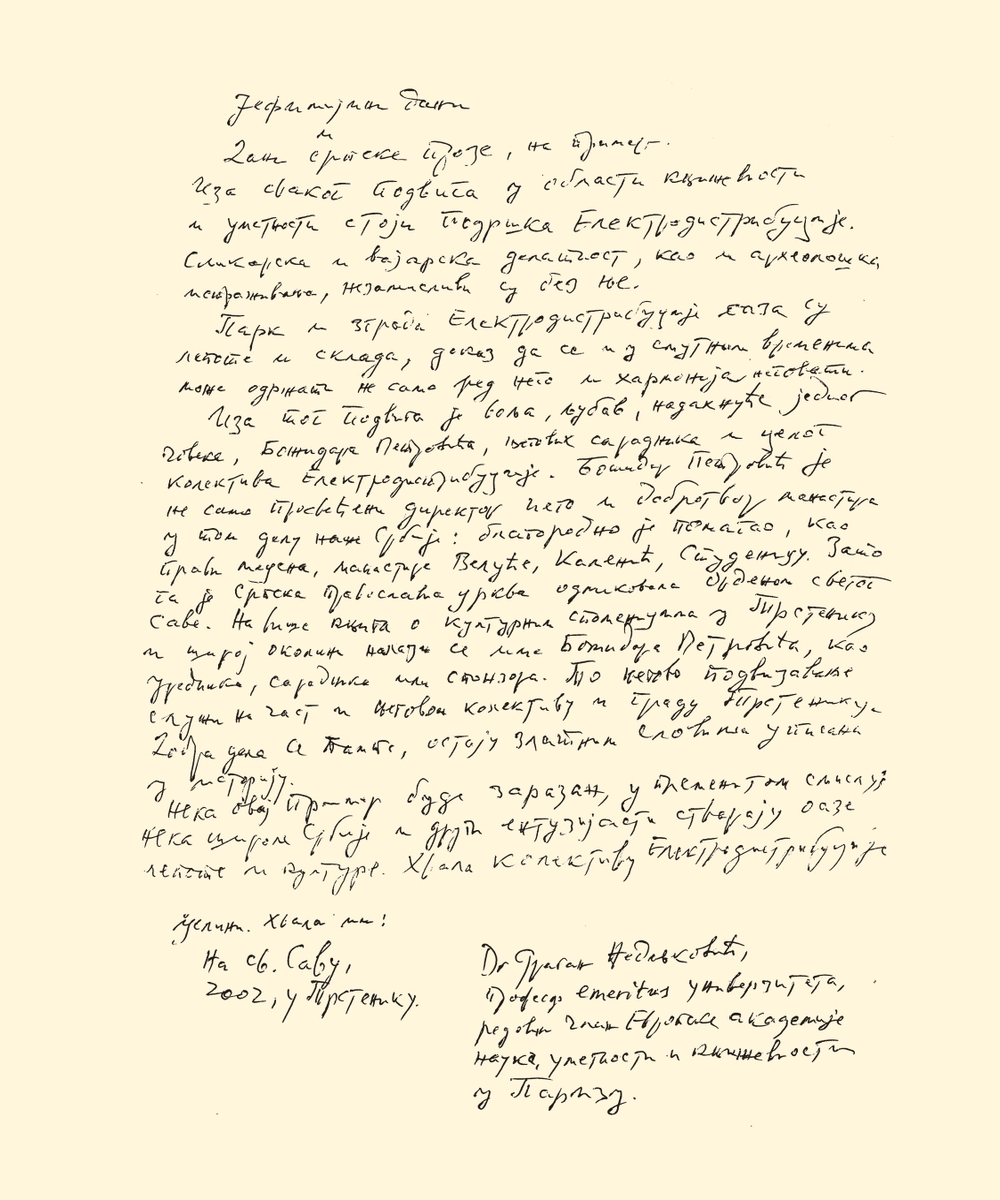 Јефимијини дани
Дани српске прозе, на пример.
Иза сваког подвига у области књижевности
и уметности стоји подршка Електродистрибуције.
Сликарска и вајарска делатност, као и археолошка
истраживања, незамисливи су без ње.
Парк и зграда Електродистрибуције оаза су
лепоте и склада, доказ да се и у смутним временима
може одржати не само ред него и хармонија неговати.
Иза тог подвига је воља, љубав, надахнуће једног
човека, Божидара Петровића, његових сарадника и целог
колектива Електродистрибуције. Божидар Петровић је
не само просвећени директор него и добротвор манастира
у том делу наше Србије: благородно је помагао, као
прави мецена, манастире Велуће, Каленић, Студеницу. Зато
га је Српска православна црква одликовала Орденом светог
Саве. На више књига о културним споменицима у Трстенику
и широј околини налази се име Божидара Петровића, као
уредника, сарадника или спонзора. То његово подвизавање
служи на част и његовом колективу и граду Трстенику.
Добра дела се памте, остају златним словима уписана
у историју.
Нека овај пример буде заразан, у племенитом смислу;
нека широм Србије и други ентузијасти стварају оазе
лепоте и културе. Хвала колективу Електродистрибуције
Хвала им!
На св. Саву,
2002, у Трстенику.
Dr Драган Недељковић,
професор emeritus универзитета,
редовни члан Европске академије
наука, уметности и књижевности
у Паризу.